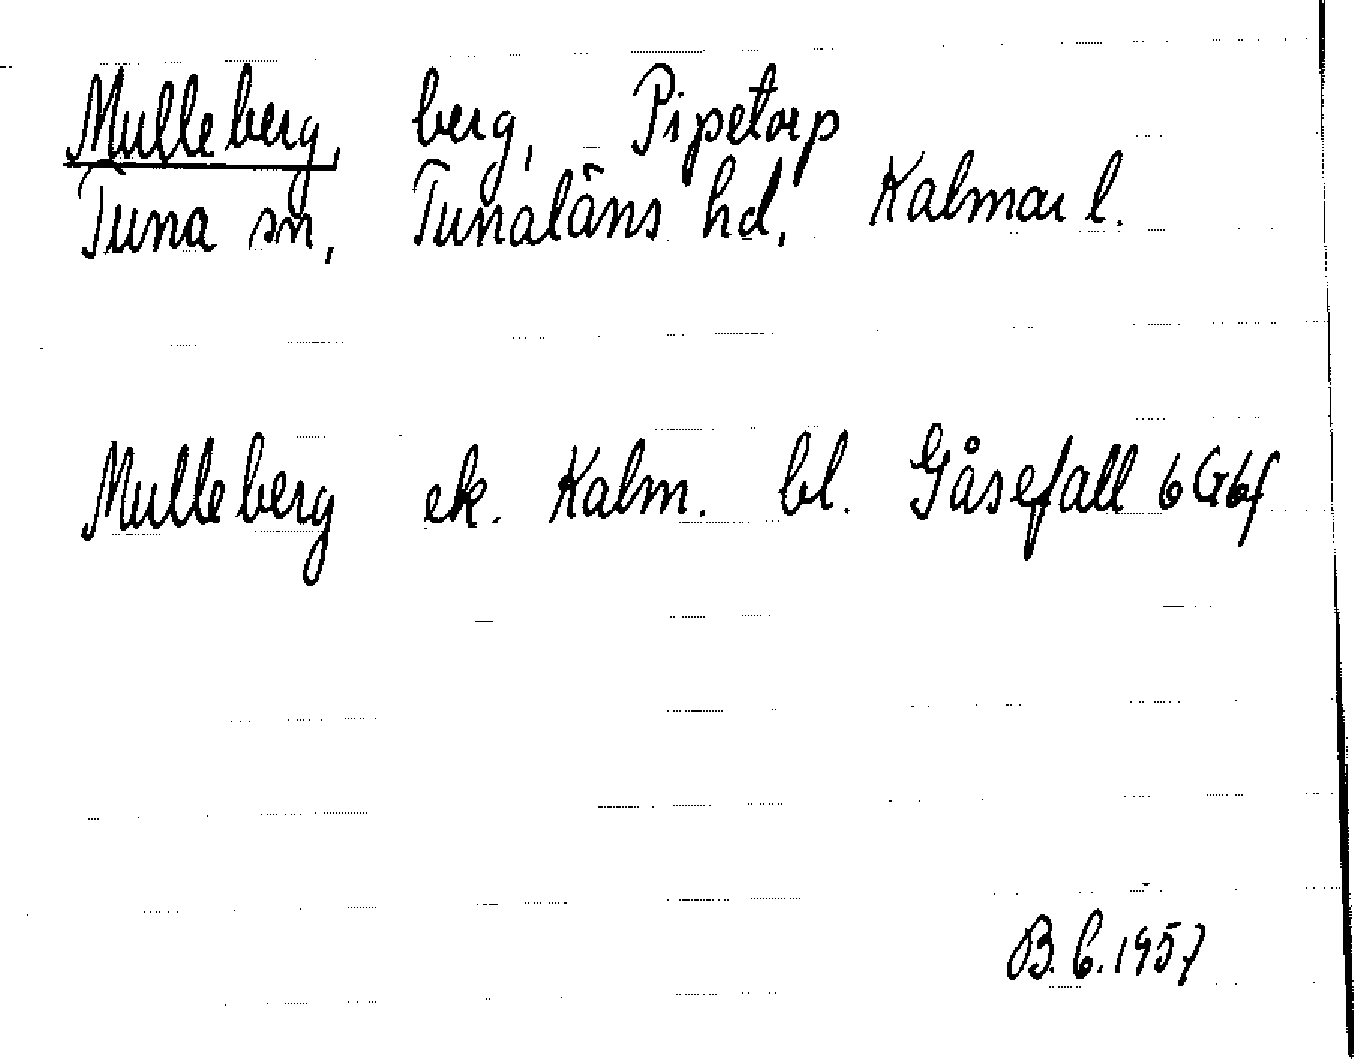 Mulleberg, berg, Pipetorp
Tuna sn, Tunaläns hd, Kalmar l.
Mulleberg ek. Kalm. bl. Gåsefall 6G6f
B. 6. 1957